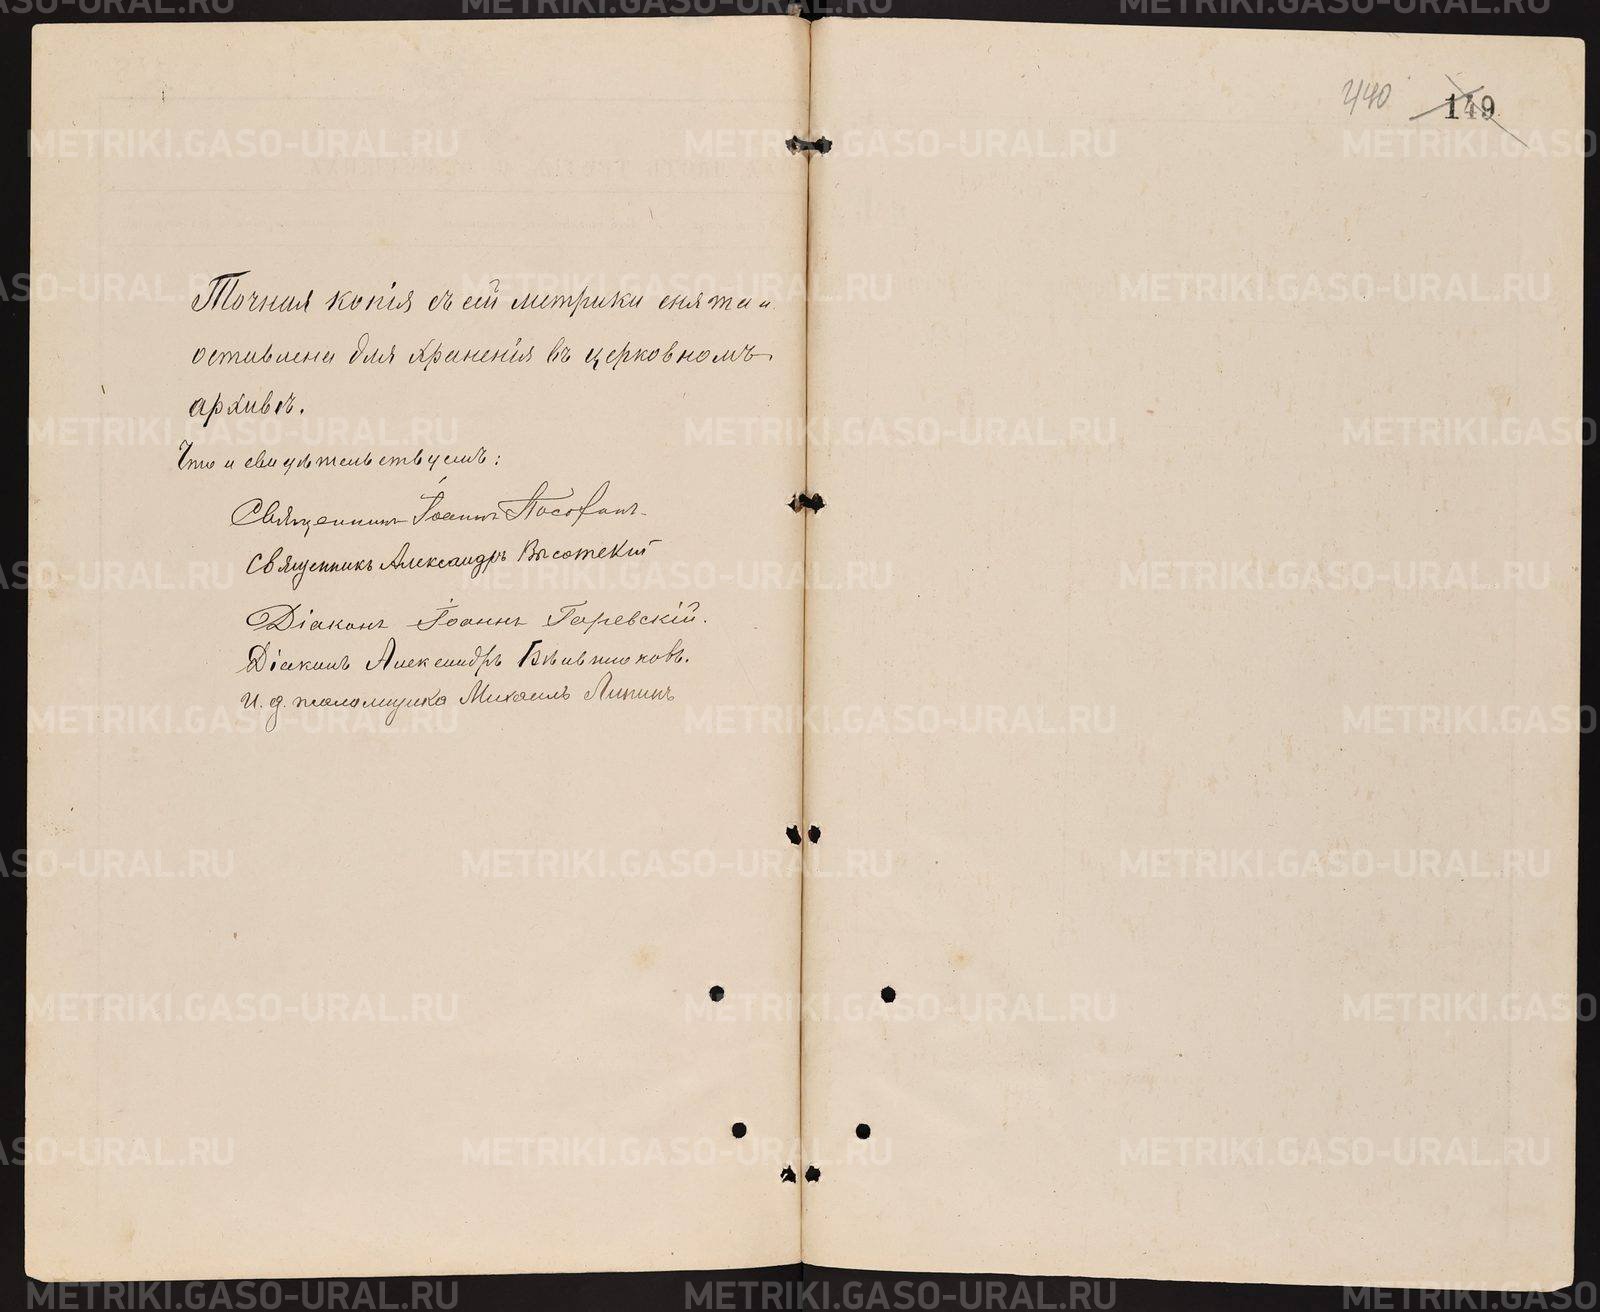 440 149
Точная копія съ сей метрики снята и
оставлена для храненія въ церковномъ
архивѣ.
Что и свидѣтельствуемъ:
Священникъ Іоаннъ
Священникъ Александръ Высотскій
Діаконъ Іоаннъ Горевскій.
Діаконъ Александръ
И. д. псаломщика Михаилъ Липинъ
METRIKI.GASO-URAL.RU